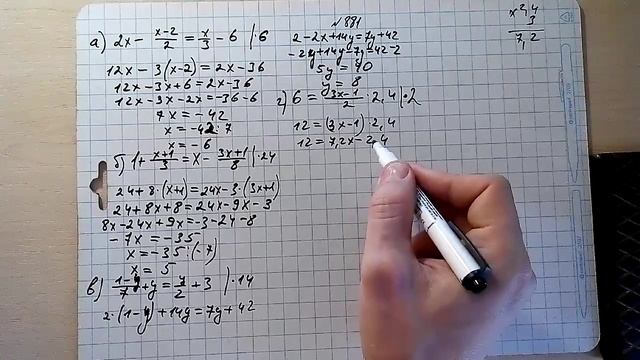 № 881
а) 2x - \frac{x-2}{2} = \frac{x}{3} - 6 | ·6
12x - 3(x-2) = 2x - 36
12x - 3x + 6 = 2x - 36
12x - 3x - 2x = -36 - 6
7x = -42
x = -42 : 7
x = -6
б) 1 + \frac{x+1}{3} = x - \frac{3x+1}{8} | ·24
24 + 8·(x+1) = 24x - 3·(3x+1)
24 + 8x + 8 = 24x - 9x - 3
8x - 24x + 9x = -3 - 24 - 8
-7x = -35
x = -35 : (-7)
x = 5
в) \frac{1-y}{7} + y = \frac{y}{2} + 3 | ·14
2·(1-y) + 14y = 7y + 42
2 - 2x + 14y = 7y + 42
-2y + 14y - 7y = 42 - 2
5y = 40
y = 8
г) 6 = \frac{3x-1}{2} · 2,4 | ·2
12 = (3x-1) · 2,4
12 = 7,2x - 2,4
x 2,4
3
7,2